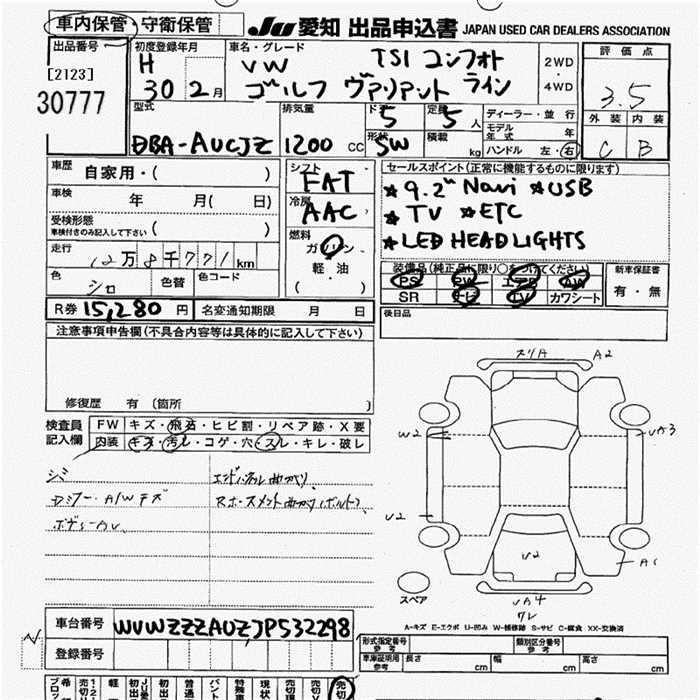 車内保管・守衛保管
JU 愛知 出品申込書 JAPAN USED CAR DEALERS ASSOCIATION
出品番号
[2123]
30777
初度登録年月
H
30 2月
車名・グレード
VW TSI コンフォート
ゴルフ ヴァリアント ライン
2WD
4WD
評価点
3.5
外装 内装
C B
型式
DBA-AUCJZ
排気量
1200 cc
ドア
5
定員
5 人
形状
SW
積載
kg
ディーラー・並行
モデル年式 年
ハンドル 左・右
車歴
自家用・( )
車検
年 月( 日)
受検形態
車検付きのみ記入して下さい ( )
走行
12万8千771km
色
シロ
色替
色コード
シフト
FAT
冷房
AAC
燃料
ガソリン
軽・油
( )
セールスポイント(正常に機能するものに限ります)
★9.2" Navi ★USB
★TV ★ETC
★LED HEADLIGHTS
装備品(純正品に限り○をつけてください)
PS PW エアB AW
SR ナビ TV カワシート
新車保証書
有・無
R券 15,280 円
名変通知期限 月 日
後日品
注意事項申告欄(不具合内容等は具体的に記入して下さい)
修復歴 有〔箇所 〕
検査員記入欄
FW キズ・飛石・ヒビ割・リペア跡・X要
内装 キズ・汚レ・コゲ・穴・スレ・キレ・破レ
エンドパネル曲がり、
スリA A2
W2
VA3
U2
U2
スペア
VA4
ワレ
A-キズ E-エクボ U-凹み W-補修跡 S-サビ C-腐食 XX-交換済
車台番号
WVWZZZAUZJP532298
登録番号
型式指定番号
参考
類別区分番号
参考
車庫証明用
参考
長さ cm
幅 cm
高さ cm